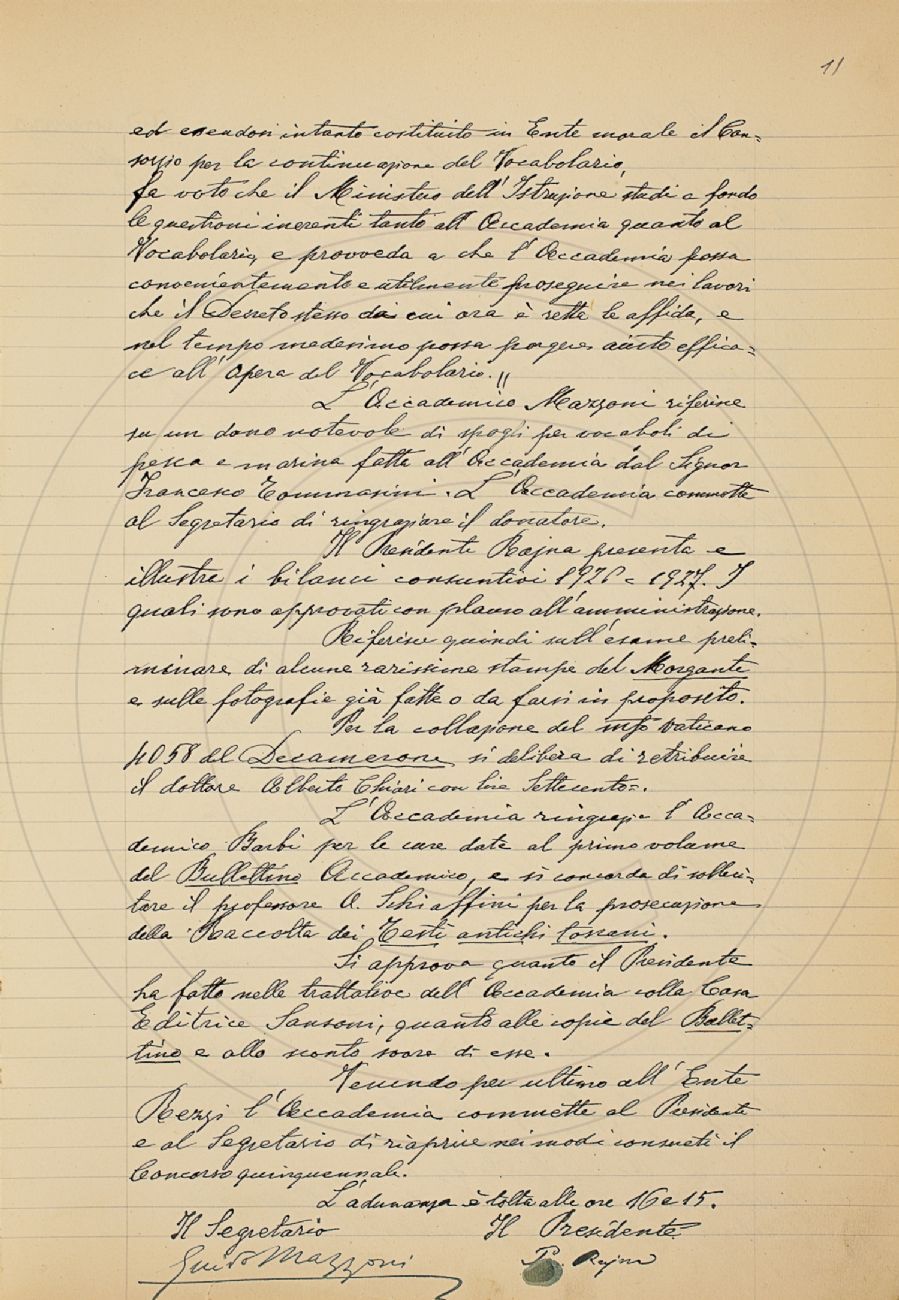 11
ed essendosi intanto costituito in Ente morale il Con=
sorzio per la continuazione del Vocabolario,
fa voto che il Ministero dell'Istruzione studi a fondo
le questioni inerenti tanto all'Accademia quanto al
Vocabolario, e provveda a che l'Accademia possa
convenientemente e utilmente proseguire nei lavori
che il Decreto stesso da cui ora è retta le affida, e
nel tempo medesimo possa porgere aiuto effica=
ce all'opera del Vocabolario."
L'Accademico Mazzoni riferisce
su un dono notevole di spogli per vocaboli di
pesca e marina fatta all'Accademia dal Signor
Francesco Tommasini. L'Accademia commette
al Segretario di ringraziare il donatore.
Il Presidente Rajna presenta e
illustra i bilanci consuntivi 1926 e 1927. I
quali sono approvati con plauso all'amministrazione.
Riferisce quindi sull'esame preli=
minare di alcune rarissime stampe del Morgante
e sulle fotografie già fatte o da farsi in proposito.
Per la collazione del mss Vaticano
4058 del Decamerone si delibera di retribuire
il dottore Alberto Chiari con lire Settecento=.
L'Accademia ringrazia l'Acca=
demico Barbi per le cure date al primo volume
del Bullettino Accademico, e si concorda di solleci=
tare il professore A. Schiaffini per la prosecuzione
della Raccolta dei Testi antichi toscani.
Si approva quanto il Presidente
ha fatto nelle trattative dell'Accademia colla Casa
Editrice Sansoni, quanto alle copie del Bullet=
tino e allo sconto sovra di esse.
Venendo per ultimo all'Ente
Rezzi l'Accademia commette al Presidente
e al Segretario di riaprire nei modi consueti il
Concorso quinquennale.
L'adunanza è tolta alle ore 16 e 15.
Il Segretario Il Presidente
Guido Mazzoni P. Rajna